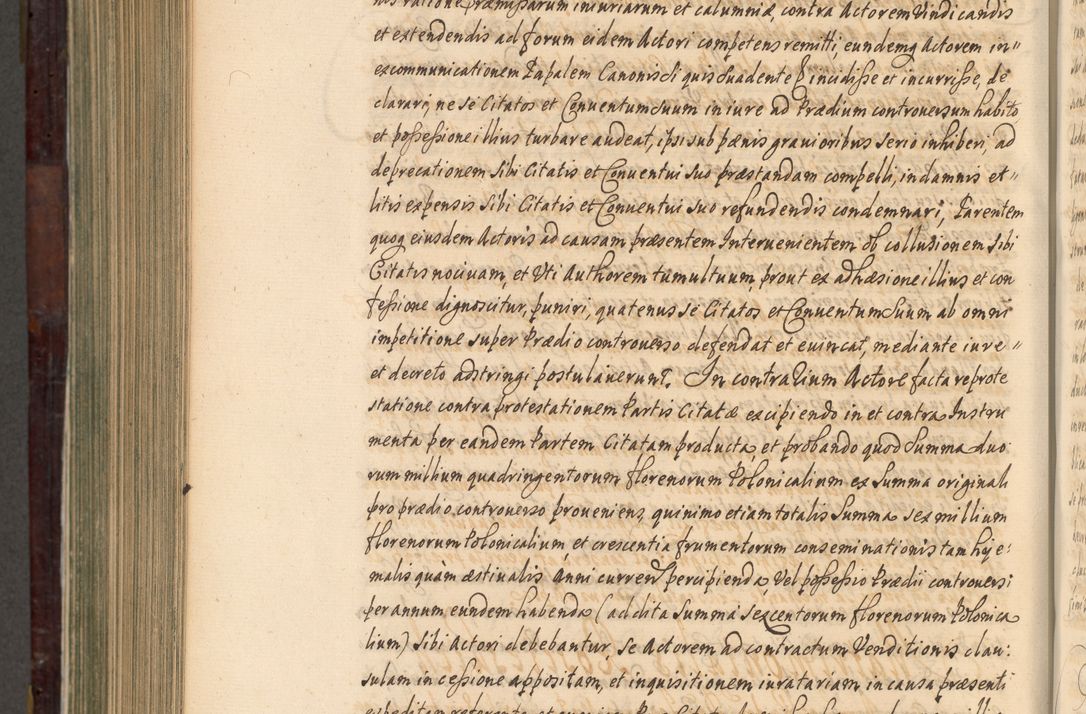 nis ratione præmissarum iniuriarum et calumniæ, contra Actorem Vindicandis
et extendendis ad forum eidem Actori competens remitti, eundemq Actorem in„
excommunicationem Papalem Canonis Si quis suadente incidisse et incurrisse, de
clarari, ne se Citatos et Conuentum suum in iure ad Prædium controuersum habito,
et possessione illius turbare audeat, ipsi sub pænis grauioribus serio inhiberi, ad
deprecationem sibi Citatis et Conuentui suo præstandam compelli, in damnis et„
litis expensis sibi Citatis et Conuentui suo refundendis condemnari, Parentem
quoq eiusdem Actoris ad causam præsentem Interuenientem ob collusionem sibi
Citatis nociuam, et Vti Authorem tumultuum, prout ex adhæsione illius et con
fessione dignoscitur, puniri, quatenus se Citatos et Conuentum suum ab omni
impetitione super Prædio controuerso defendat et euincat, mediante iure„
et decreto adstringi postulauerunt. In contrarium Actore facta reprote
statione contra protestationem Partis Citatæ excipiendo in et contra Instru
menta per eandem Partem Citatam producta, et probando quod Summa duo
rum millium quadringentorum florenorum Polonicalium ex Summa originali
pro prædio controuerso proueniens, quinimo etiam totalis Summa sex millium
florenorum Polonicalium, et crescentia frumentorum conseminationis tam hye:
malis quàm æstiualis Anni curren percipienda, Vel possessio Prædii controuersi
per annum eundem habenda (addita Summa sexcentorum florenorum Polonica
lium) sibi Actori debebantur, se Actorem ad contractum Venditionis clau:
sulam in cessione appositam, et inquisitionem iuratariam in causa præsenti